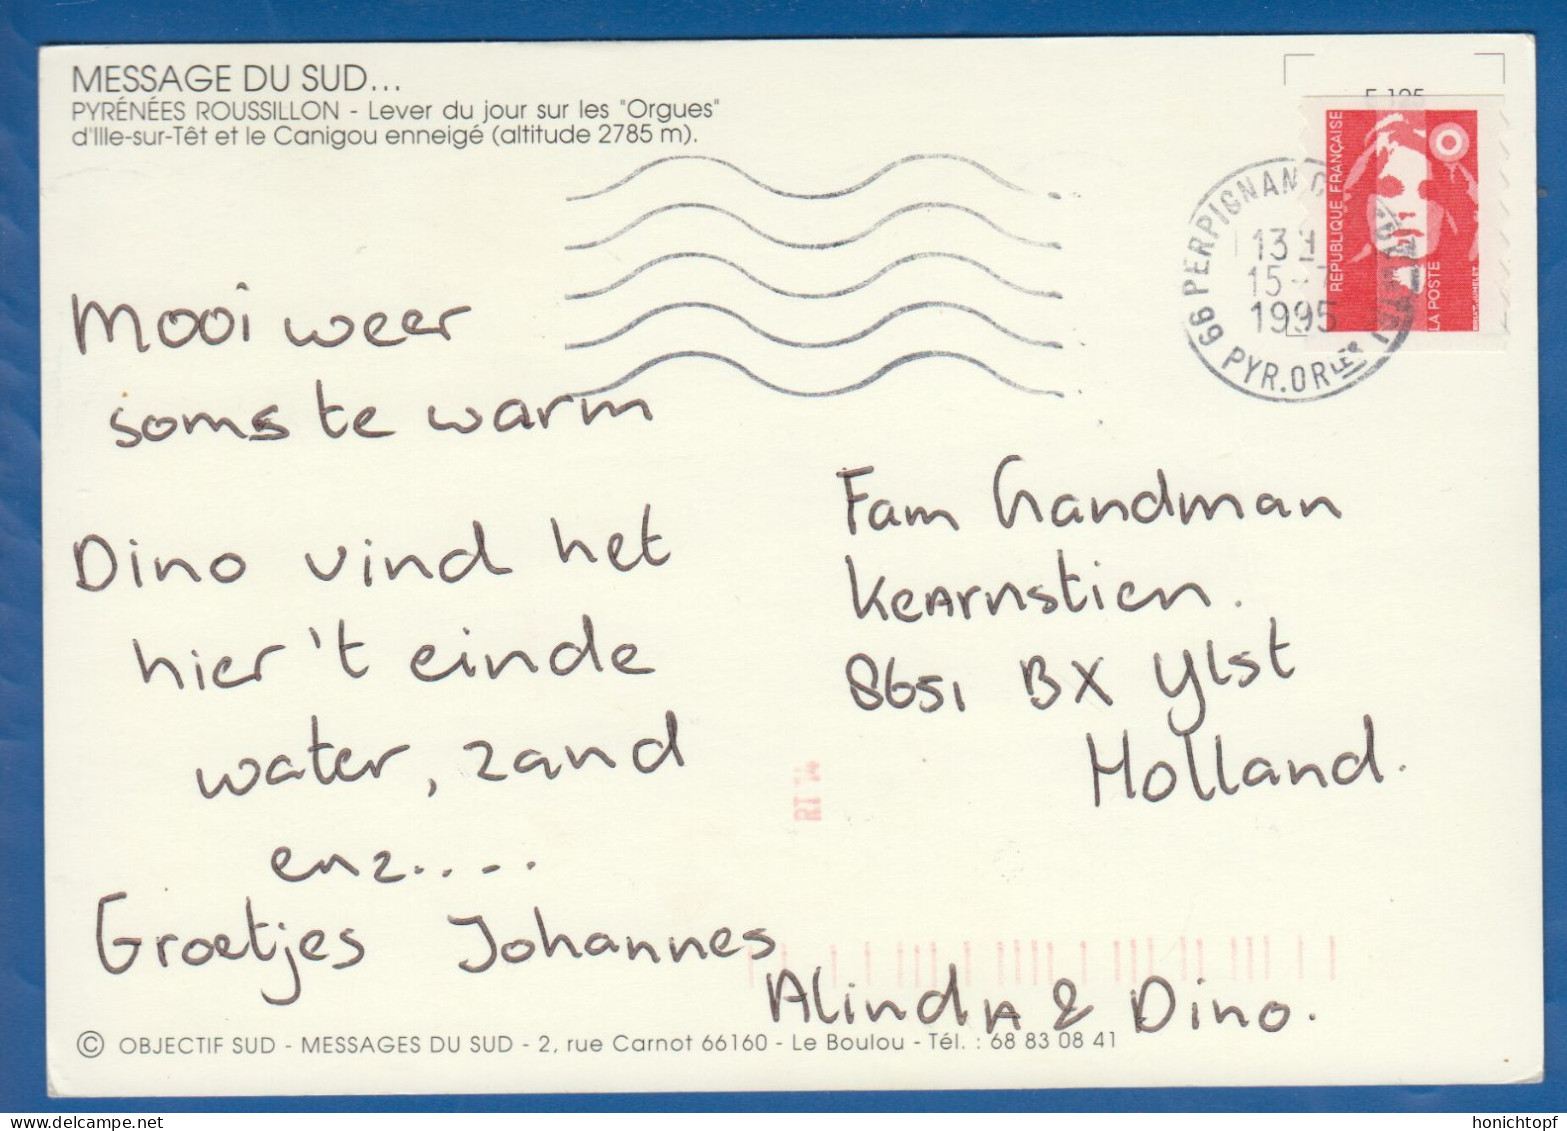 MESSAGE DU SUD...
PYRÉNÉES ROUSSILLON - Lever du jour sur les "Orgues"
d'Ille-sur-Têt et le Canigou enneigé (altitude 2785 m).
RÉPUBLIQUE FRANÇAISE
LA POSTE
66 PERPIGNAN
13 H
15-7
1995
PYR.OR
Mooi weer
soms te warm
Dino vind het
hier 't einde
water, zand
enz.....
Groetjes Johannes
Alinda & Dino.
Fam
8651 BX Ylst
Holland.
© OBJECTIF SUD - MESSAGES DU SUD - 2, rue Carnot 66160 - Le Boulou - Tél. : 68 83 08 41